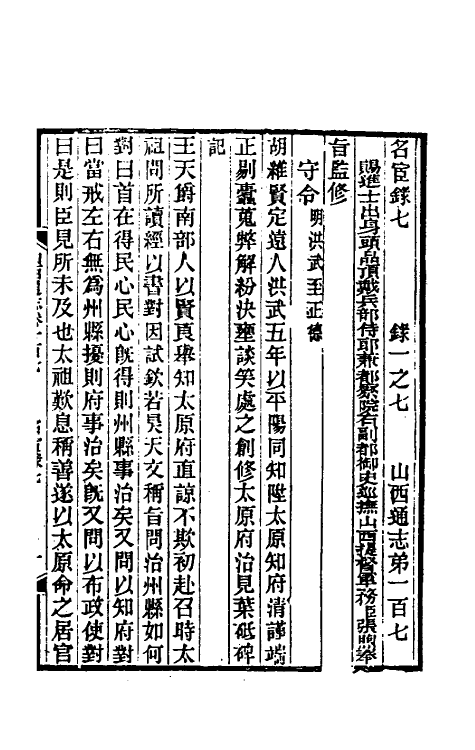 名宦錄七 錄一之七 山西通志第一百七
賜進士出身頭品頂戴兵部侍郎兼都察院右副都御史巡撫山西提督軍務臣張煦奉
旨監修
守令明洪武至正德
胡維賢定遠人洪武五年以平陽同知陞太原知府清謹端
正剔蠹蒐弊解紛決壅談笑處之創修太原府治見葉砥碑
記
王天爵南部人以賢良舉知太原府直諒不欺初赴召時太
祖問所讀經以書對因試欽若昊天文稱旨問治州縣如何
對曰首在得民心民心旣得則州縣事治矣又問以知府對
曰當戒左右無爲州縣擾則府事治矣旣又問以布政使對
曰是則臣見所未及也太祖歎息稱善遂以太原命之居官